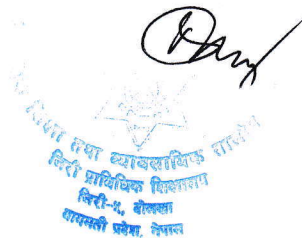 शिक्षा तथा व्यावसायिक तालीम
जिरी प्राविधिक शिक्षालय
जिरी-५, दोलखा
बागमती प्रदेश, नेपाल